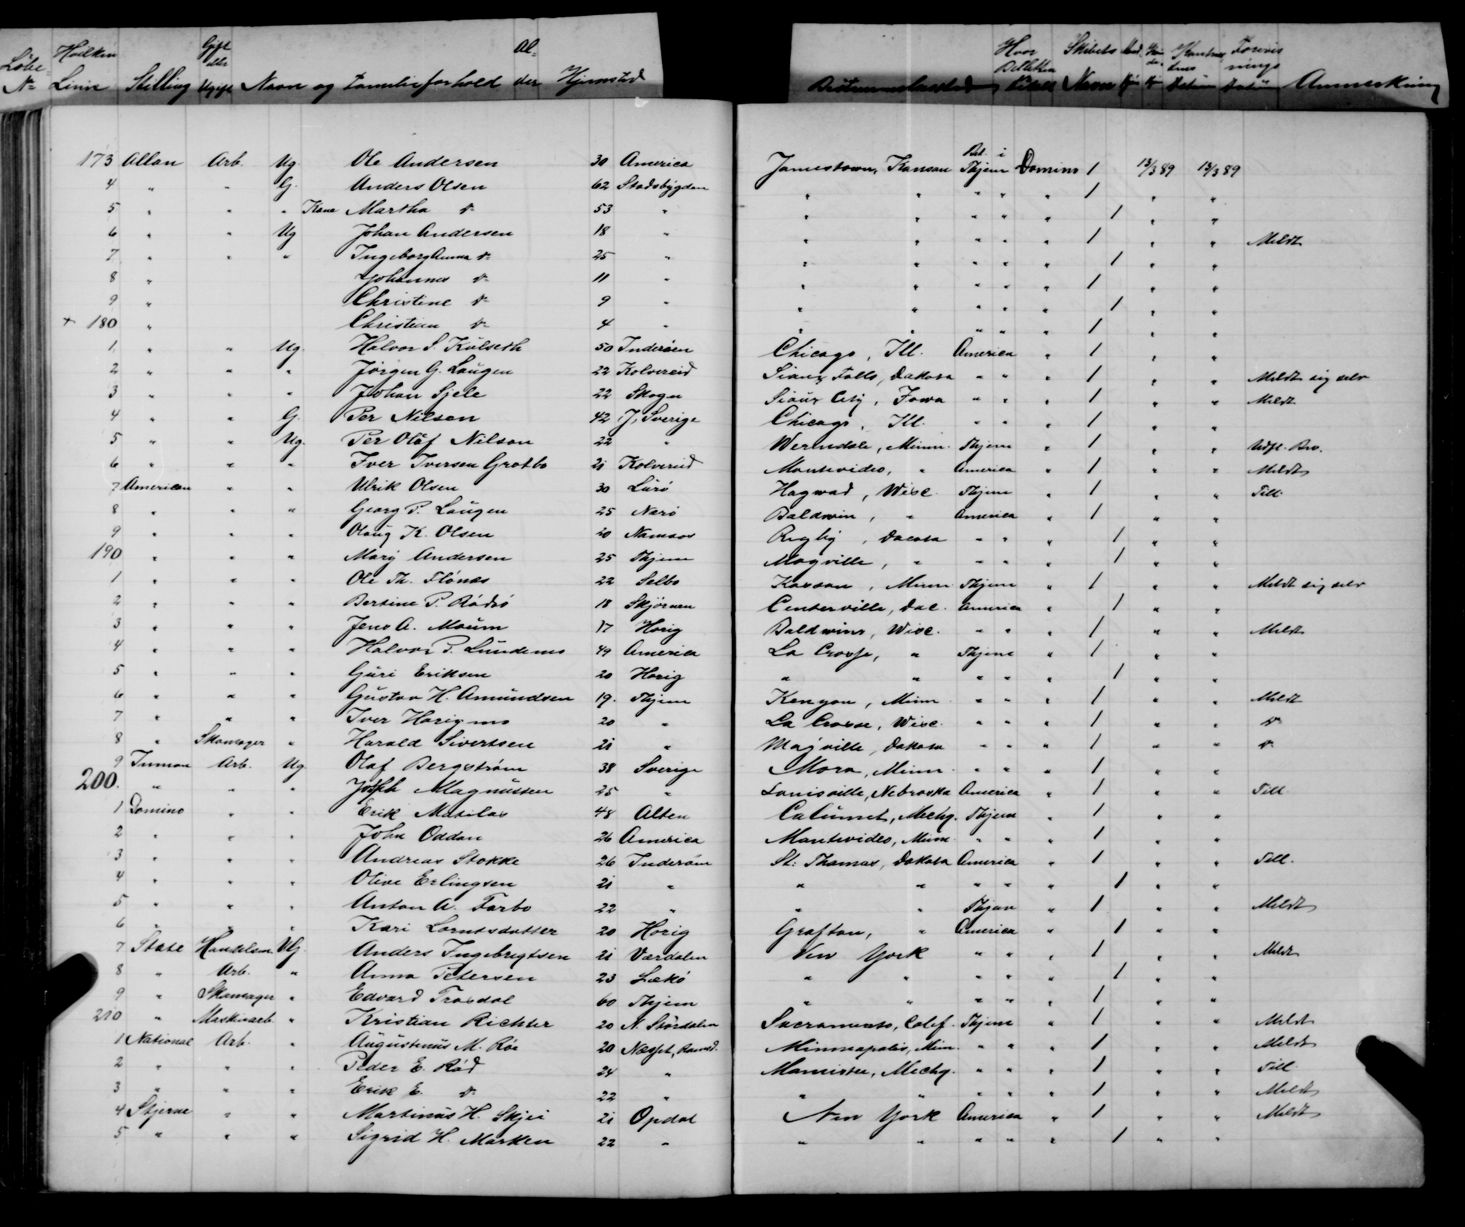 Löbe No Hvilken Linie Stilling Gift eller Ugift Navn og Familieforhold Alder Hjemsted Bestemmelsessted Hvor Billetten Skibets Navn Anmerkning
173 Allan Arb. Ug. Ole Andersen 30 America Jamestown, Kansas Bet. i Thjem Domino 1 13/3 89 13/3 89
4 " " G. Anders Olsen 62 Stadsbygden " " " " " 1 " "
5 " " " Kone Martha do 53 " " " " " " 1 " "
6 " " Ug Johan Andersen 18 " " " " " " 1 " " Meldt
7 " " " Ingeborg Anna do 25 " " " " " " 1 " "
8 " Johannes do 11 " " " " " " 1 " "
9 " Christine do 9 " " " " " " 1 " "
+ 180 " Christian do 4 " " " " " " 1 " "
1 " " Ug. Halvor S. Kulseth 50 Inderöen Chicago, Ill. America " 1 " "
2 " " " Jörgen G. Laugen 22 Kolvereid Sioux Falls, Dakota " " " 1 " " Meldt sig selv
3 " " " Johan Sjele 22 Skogn Sioux City, Iowa " " " 1 " " Meldt
4 " " G. Per Nilsen 42 J. Sverige Chicago, Ill. " " " 1 " "
5 " " Ug. Per Olaf Nilson 22 " Werndale, Minn. Thjem " 1 " "
6 " " " Iver Iversen Grotto 21 Kolvereid Montevideo, " America " 1 " " Meldt
7 American " " Ulrik Olsen 30 Lurö Hagwad, Wisc. Thjem " 1 " " Till.
8 " " " Georg P. Laugen 25 Nærö Baldwin, " America " 1 " "
9 " " " Olaug K. Olsen 20 Namsos Rugby, Dacota " " " 1 " "
190 " " " Mary Andersen 25 Thjem Mayville, " " " " 1 " "
1 " " " Ole Th. Flönæs 22 Selbo Kasson, Minn Thjem " 1 " " Meldt sig selv
2 " " " Bertine P. Rödsö 18 Skjörnen Centerville, Dac. America " 1 " "
3 " " " Jens A. Moum 17 Horig Baldwins, Wisc. " " " 1 " " Meldt
4 " " " Halvor P. Lundemo 49 America La Crosse, " Thjem " 1 " "
5 " " " Guri Eriksen 20 Horig " " " " " 1 " "
6 " " " Gustav H. Amundsen 19. Thjem Kenyon, Minn. " " " 1 " " Meldt
7 " " " Iver Horigmo 20 " La Crosse, Wisc. " " " 1 " " do
8 " Skomager " Harald Sivertsen 21 " Mayville, Dakota " " " 1 " " do
9 Inman Arb. Ug Olaf Bergström 38 Sverige Mora, Minn. " " " 1 " "
200. " " " Joseph Magnussen 25 " Louisville, Nebraska America " 1 " " Till.
1 Domino " " Erik Matilas 48 Alten Calumet, Michg. Thjem " 1 " "
2 " " " John Oddan 26 America Montevideo, Minn " " " 1 " "
3 " " " Andreas Stokke 26 Inderöen St. Thomas, Dakota America " 1 " " Till.
4 " " " Oline Erlingsen 21 " " " " " " 1 " "
5 " " " Anton A. Farbo 22 " " " Thjem " 1 " " Meldt
6 " " " Kari Lorntsdatter 20 Horig Grafton, " America " 1 " "
7 State Handelsm Ug. Anders Ingebrigtsen 21 Værdalen New York " " " 1 " " Meldt
8 " Arb. " Anna Petersen 23 Lekö " " " " " 1 " "
9 " Skomager " Edvard Trosdal 60 Thjem " " " " " 1 " "
210 " Maskinarb " Kristian Richter 20 N. Stördalen Sacramento, Calif. Thjem " 1 " " Meldt
1 National Arb. " Augustinus M. Röe 20 Næsset, Romsd. Minneapolis, Min. " " " 1 " " Meldt
2 " " " Peder E. Röd 24 " Manistee, Michg. " " " 1 " " Till
3 " " " Erik E. do 22 " " " " " " 1 " " Meldt
4 Stjerne " " Martinus H. Skjei 21 Opdal New York America " 1 " " Meldt
5 " " " Sigrid H. Marken 22 " " " " " " 1 " "